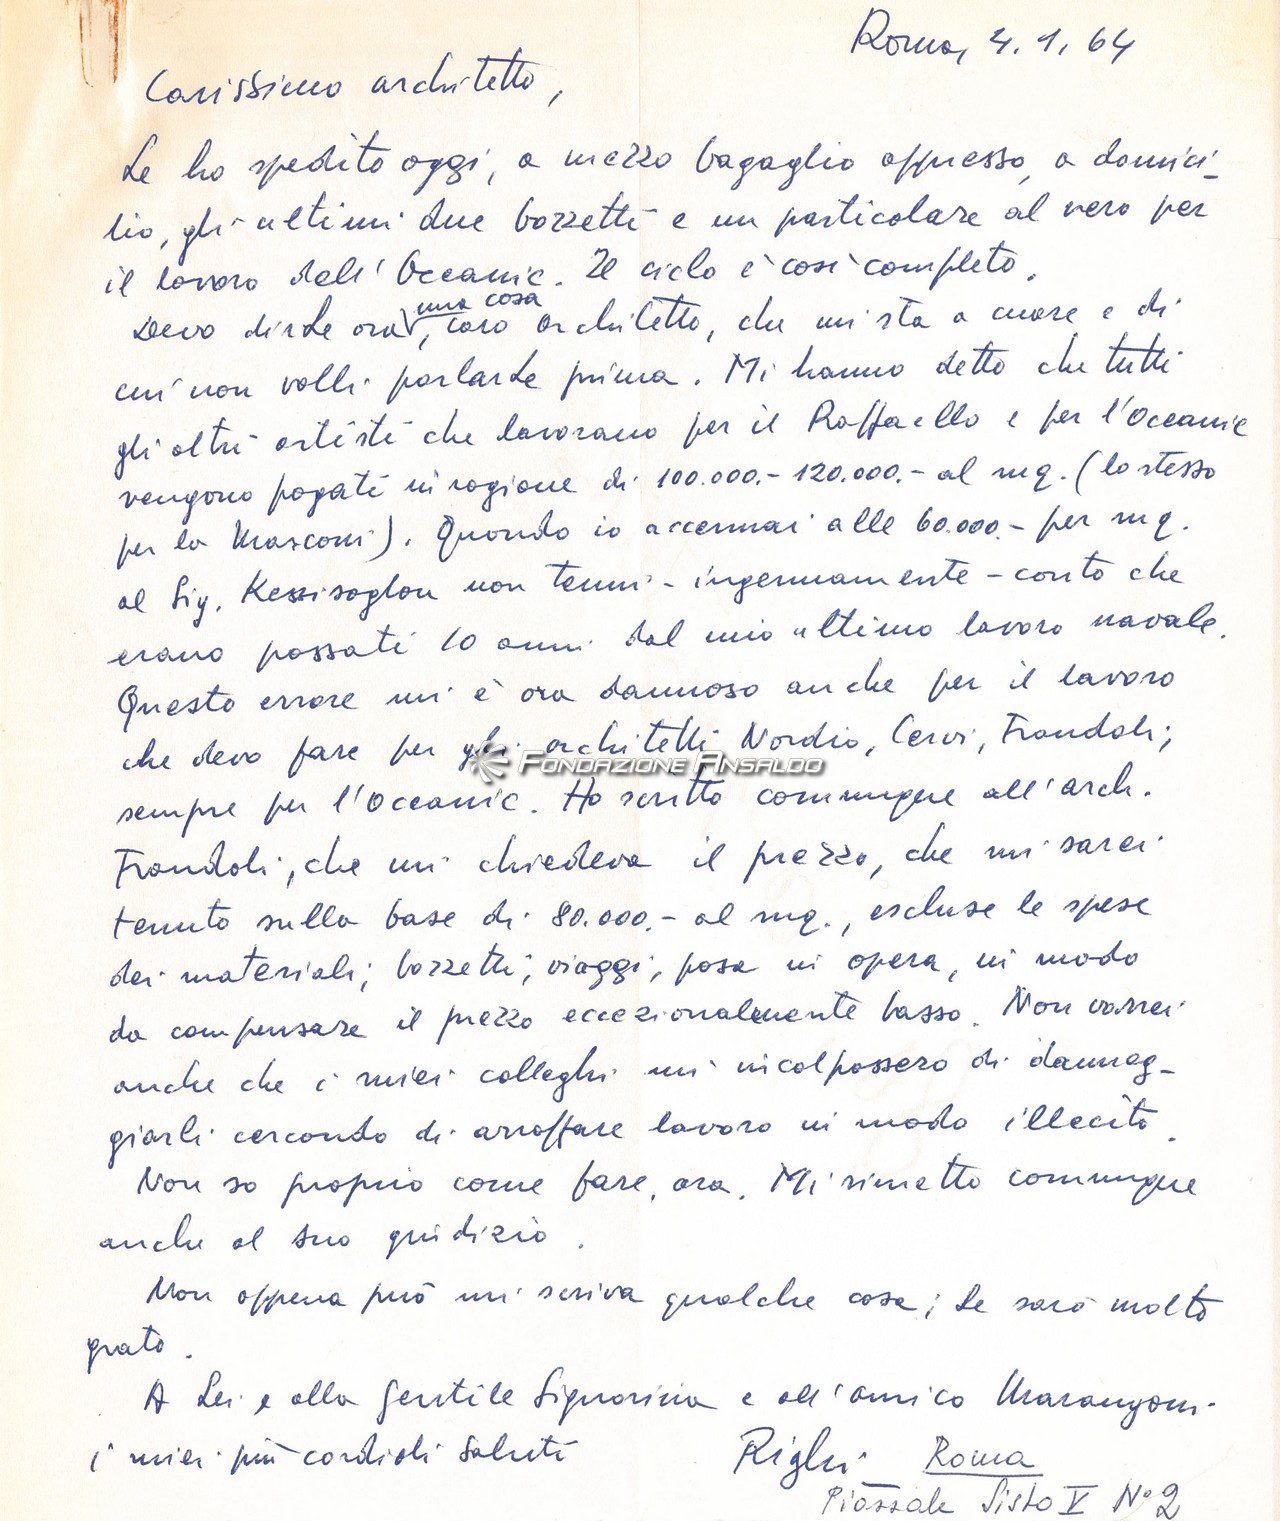 Roma, 4.1.64
Carissimo architetto,
Le ho spedito oggi, a mezzo bagaglio appresso, a domici-
lio, gli ultimi due bozzetti e un particolare al vero per
il lavoro dell'Oceanic. Il ciclo è così completo.
Devo dirLe ora una cosa, caro architetto, che mi sta a cuore e di
cui non volli parlarLe prima. Mi hanno detto che tutti
gli altri artisti che lavorano per il Raffaello e per l'Oceanic
vengono pagati in ragione di 100.000.- 120.000.- al mq. (lo stesso
per la Mascom). Quando io accennai alle 60.000.- per mq.
al Sig. Kessisoglou non tenni - ingenuamente - conto che
erano passati 10 anni dal mio ultimo lavoro navale.
Questo errore mi è ora dannoso anche per il lavoro
che devo fare per gli architetti Nordio, Cervi, Frandoli;
FONDAZIONE ANSALDO
sempre per l'Oceanic. Ho scritto comunque all'arch.
Frandoli, che mi chiedeva il prezzo, che mi sarei
tenuto sulla base di 80.000.- al mq., escluse le spese
dei materiali, bozzetti, viaggi, posa in opera, in modo
da compensare il prezzo eccezionalmente basso. Non vorrei
anche che i miei colleghi mi incolpassero di danneg-
giarli cercando di arraffare lavoro in modo illecito.
Non so proprio come fare, ora. Mi rimetto comunque
anche al suo giudizio.
Non appena può mi scriva qualche cosa; Le sarò molto
grato.
A Lei e alla Gentile Signorina e all'amico Marangoni
i miei più cordiali saluti
Righi Roma
Piazzale Sisto V N° 2